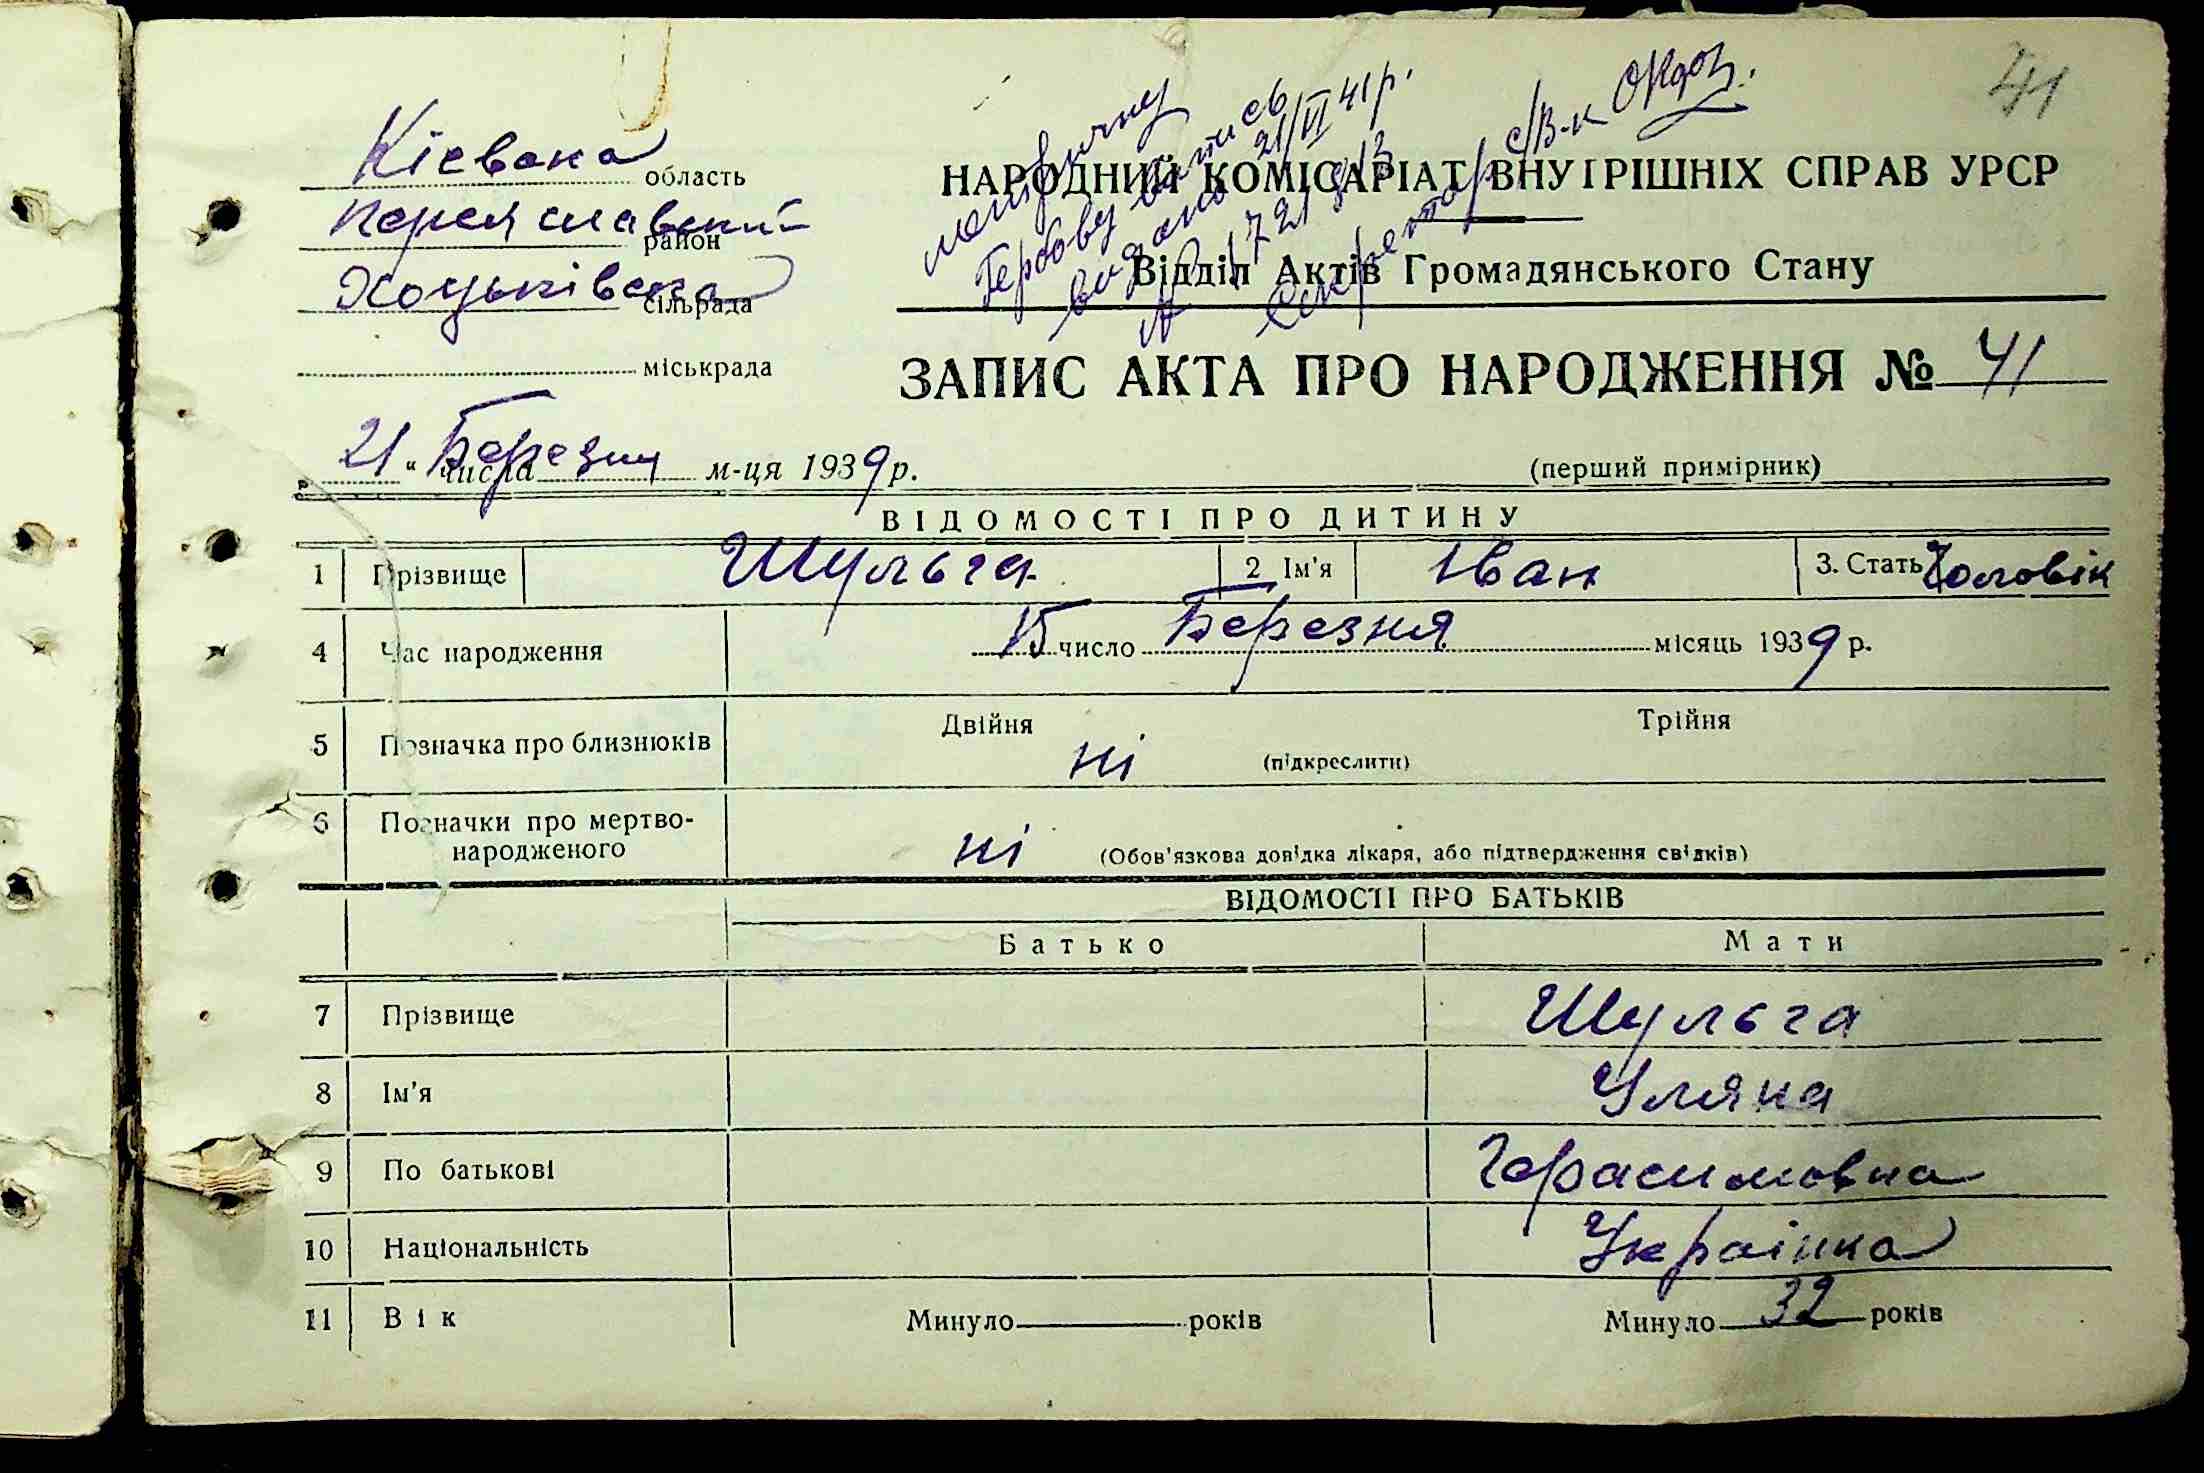 41
Кієвска область
Переяславский район
Хоцьківска сільрада
міськрада
НАРОДНИЙ КОМІСАРІАТ ВНУТРІШНІХ СПРАВ УРСР
Відділ Актів Громадянського Стану
метричну
Гербову випись
видано 21/VI 41 р.
Секретар с/В-к
ЗАПИС АКТА ПРО НАРОДЖЕННЯ № 41
21 " числа Березня м-ця 1939 р.
(перший примірник)
ВІДОМОСТІ ПРО ДИТИНУ
1 Прізвище Шульга 2 Ім'я Іван 3. Стать Чоловік
4 Час народження 15 число Березня місяць 1939 р.
5 Позначка про близнюків Двійня ні (підкреслити) Трійня
6 Позначки про мертво-
народженого ні (Обов'язкова довідка лікаря, або підтвердження свідків)
ВІДОМОСТІ ПРО БАТЬКІВ
Батько Мати
7 Прізвище Шульга
8 Ім'я Уляна
9 По батькові Герасимовна
10 Національність Украінка
11 Вік Минуло років Минуло 32 років